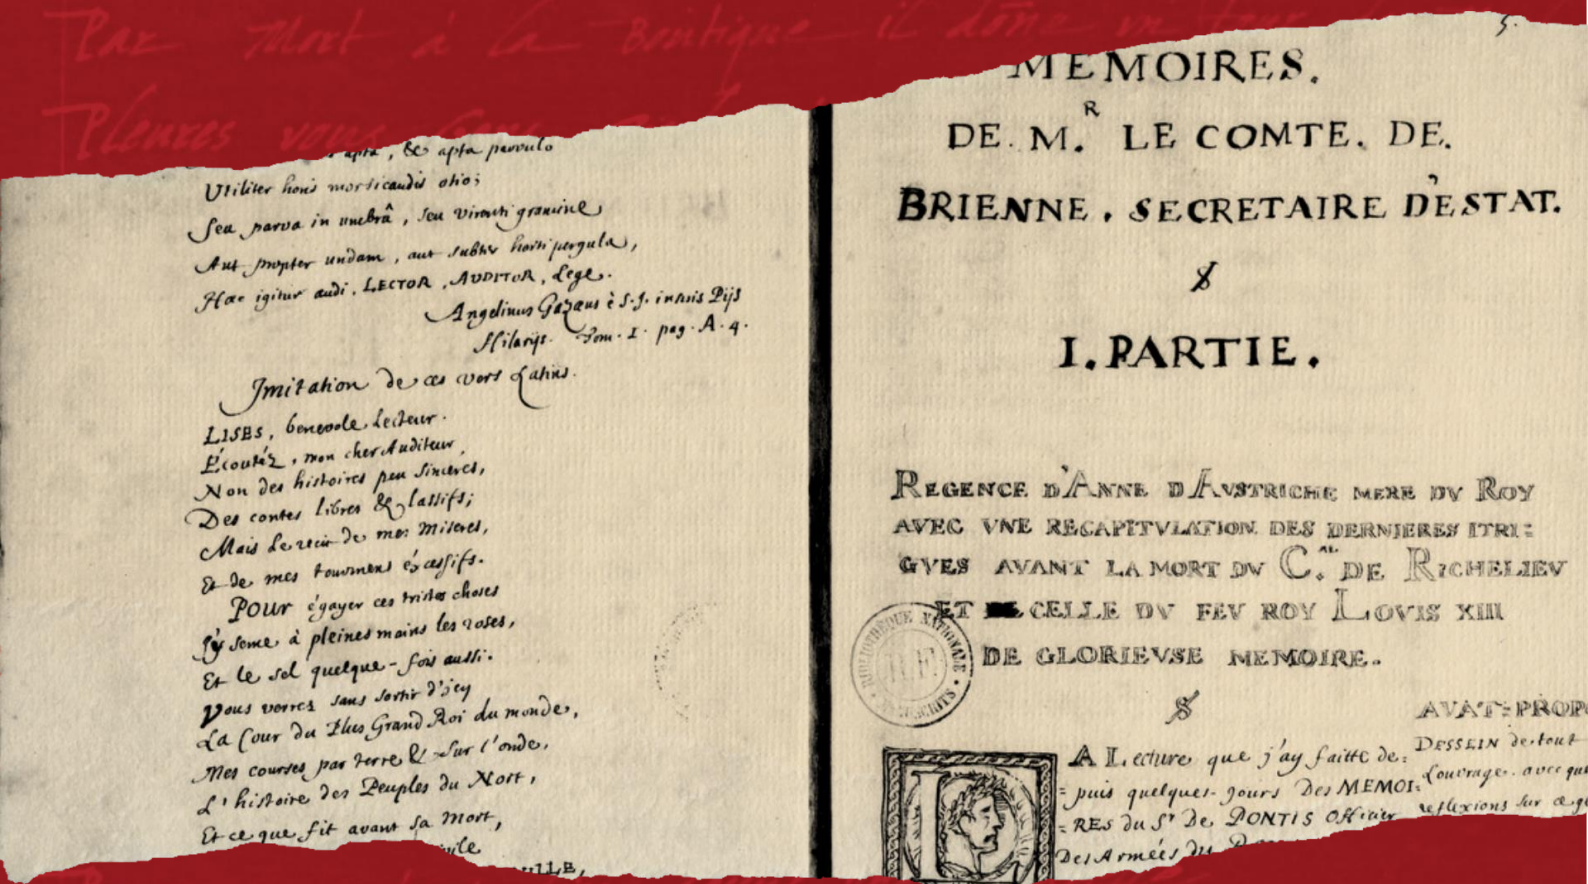 Par Mort à la Boutique il done un
Pleures vous
apta, & apta parvulo
Utiliter horis morsicandis otio;
Seu parva in umbrâ, seu virenti gramine
Aut propter undam, aut subter horti pergula,
Hæc igitur audi, LECTOR, AUDITOR, Lege.
Angelinus Gazæus è S.J. in suis Pijs
Hilarijs. Tom. I. pag. A. 4.
Imitation de ces vers Latins.
LISES, benevole Lecteur.
Ecoutéz, mon cher Auditeur,
Non des histoires peu sinceres,
Des contes libres & lassifs;
Mais le recit de mes miseres,
Et de mes tourmens éxcessifs.
POUR égayer ces tristes choses
J'y seme à pleines mains les roses,
Et le sel quelque-fois aussi.
Vous verres sans sortir d'icy
La Cour du Plus Grand Roi du monde,
Mes courses par terre & sur l'onde,
L'histoire des Peuples du Nort,
Et ce que fit avant sa mort,
VILLE,
5.
MEMOIRES.
DE. M.R LE COMTE. DE.
BRIENNE. SECRETAIRE D'ESTAT.
I. PARTIE.
REGENCE D'ANNE D'AVSTRICHE MERE DV ROY
AVEC VNE RECAPITVLATION DES DERNIERES ITRI=
GVES AVANT LA MORT DV C.AL DE RICHELIEV
ET CELLE DV FEV ROY LOVIS XIII
DE GLORIEVSE MEMOIRE.
BIBLIOTHEQUE NATIONALE
AVAT=PROP
DESSEIN de tout
L'ouvrage. avec que
reflexions sur ce ge
LA Lecture que j'ay faitte de=
=puis quelques-jours Des MEMOI=
=RES du Sr De PONTIS Officier
Des Armées du